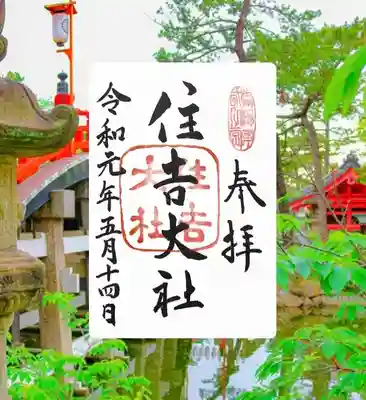 奉拝
住吉大社
住吉
大社
令和元年五月十四日